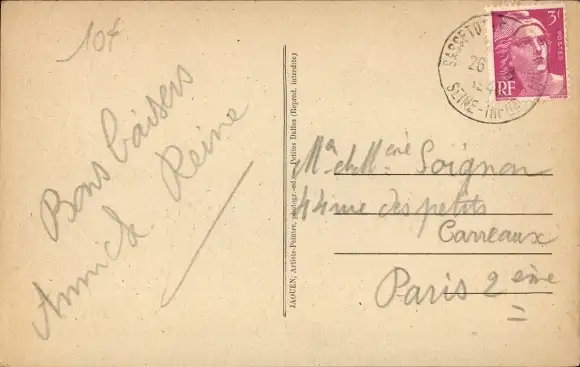 10f
Bons baisers
Annick Reine
JAOUEN, Artiste-Peintre, photogr.-ed. - Petites Dalles (Reprod. interdite)
SASSETOT
26
SEINE-INFRE
3f
POSTES
RF
Mr et Mme Soignon
44 rue des petits
Carreaux
Paris 2ème